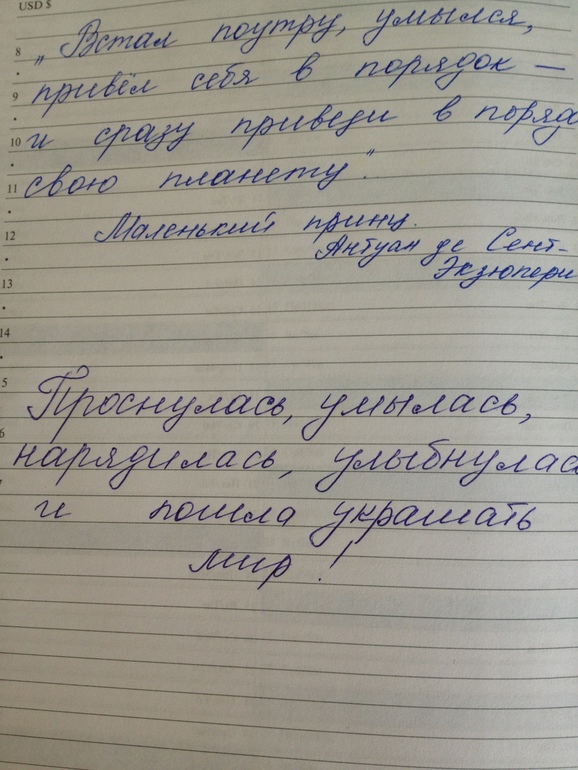 USD $
8 „Встал поутру, умылся,
9 привёл себя в порядок —
10 и сразу приведи в поряд
11 свою планету".
12 Маленький принц.
Антуан де Сент-
Экзюпери
13
14
5 Проснулась, умылась,
6 нарядилась, улыбнулас
и пошла украшать
мир!